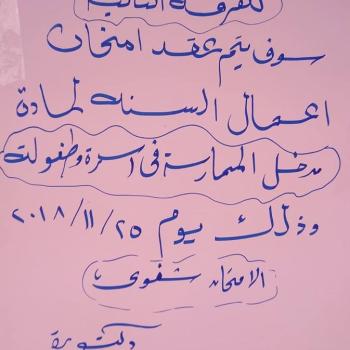 للفرقة الثانية
سوف يتم عقد امتحان
اعمال السنه لمادة
مدخل الممارسة فى اسرة وطفولة
وذلك يوم ٢٠١٨/١١/٢٥
الامتحان شفوى
دكتورة